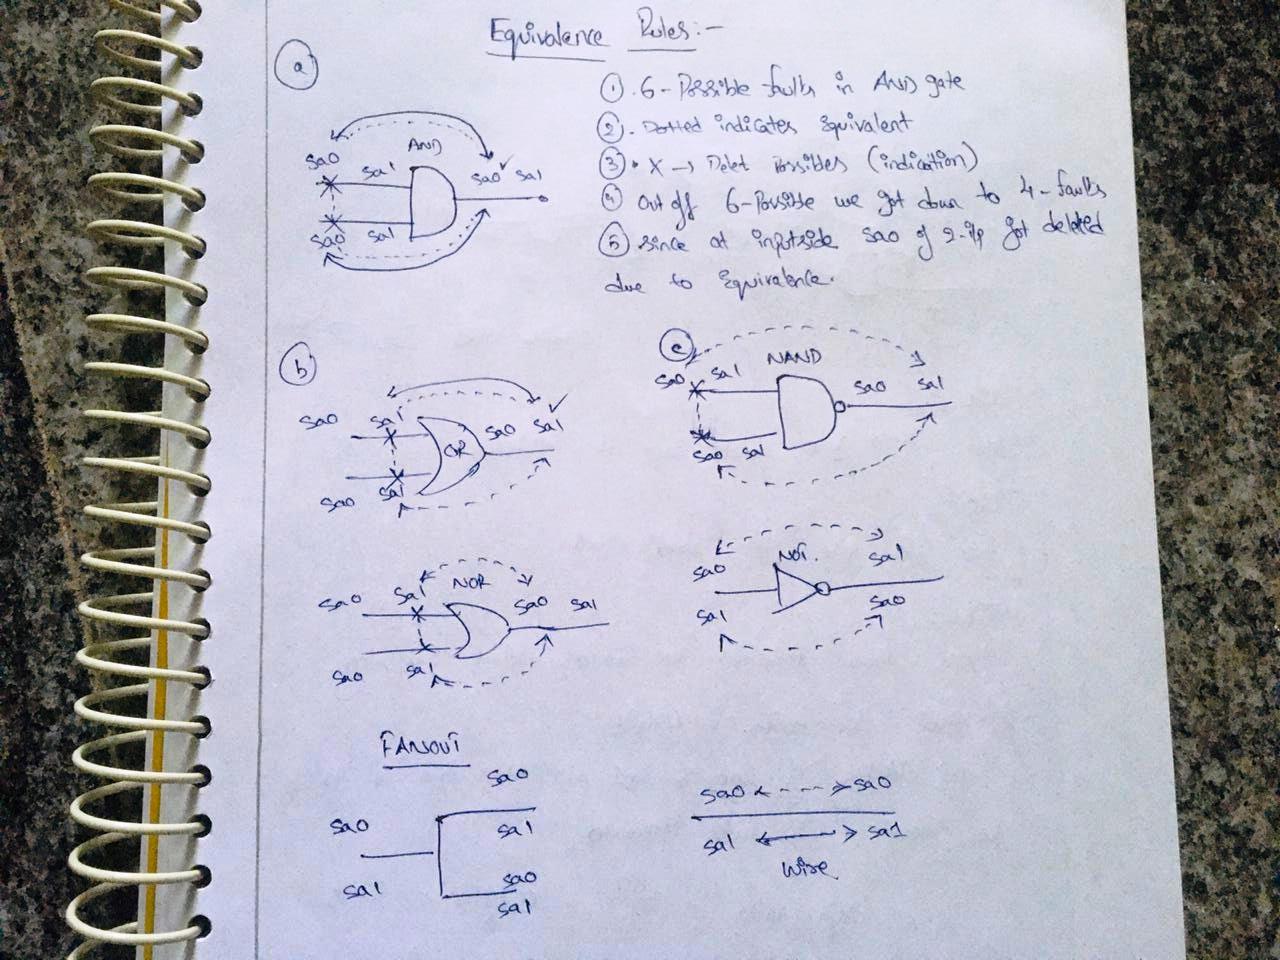 Equivalence Rules:-
a
① . 6-Possible faults in AND gate
② . Dotted indicates Equivalent
③ • X → Delet Possibles (indication)
④ Out off 6-Possible we got down to 4-faults
⑤ since at inputside sa0 of 2-i/p got deleted
due to Equivalence.
AND
sa0 sa1 sa0 ✓ sa1
sa0 sa1
b
sa0 sa1 OR sa0 sa1 ✓
sa0 sa1
c
NAND
sa0 sa1 sa0 sa1
sa0 sa1
NOR
sa0 sa1 sa0 sa1
sa0 sa1
NOT.
sa0 sa1
sa1 sa0
FANOUT
sa0
sa0 sa1
sa1 sa0
sa1
sa0 <---> sa0
sa1 <—> sa1
Wire